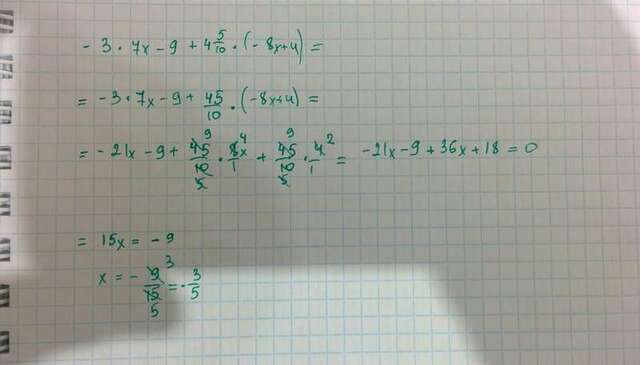 - 3 · 7x - 9 + 4 5/10 · (-8x+4) =
= -3·7x - 9 + 45/10 · (-8x+4) =
= -21x - 9 + 45/10 9 5 · 8x/1 4 + 45/10 9 5 · 4/1 2 = -21x - 9 + 36x + 18 = 0
= 15x = - 9
x = - 9/15 3 5 = - 3/5